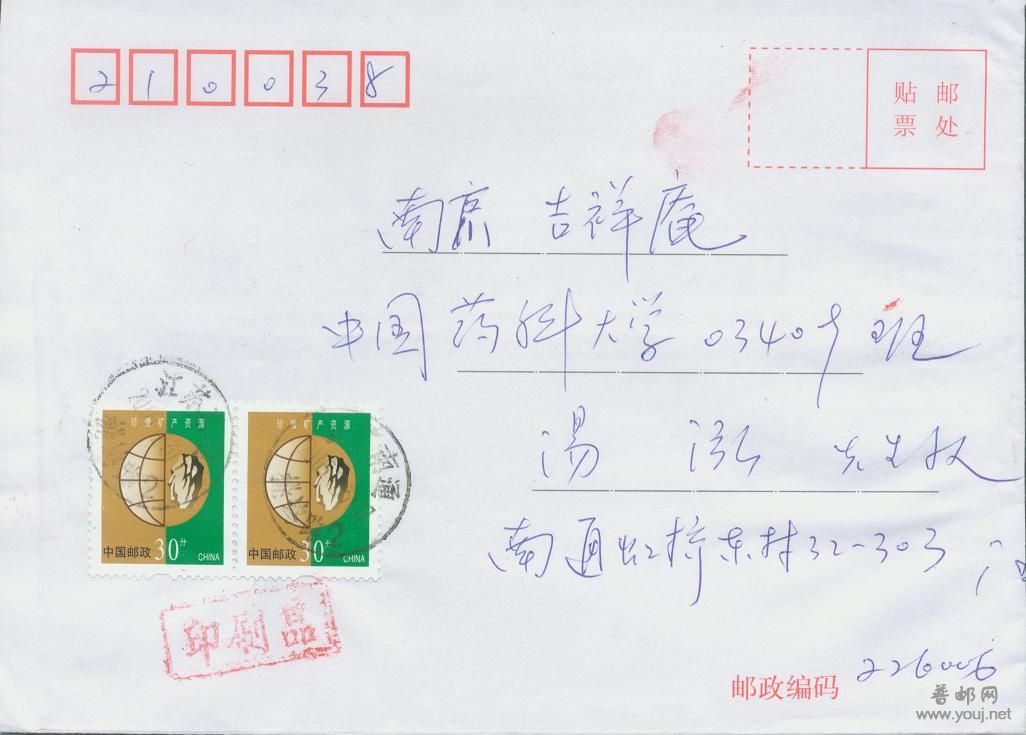 210038
贴 邮
票 处
南京 吉祥庵
中国药科大学 03409班
汤 泓 先生收
南通虹桥东村32-303
珍惜矿产资源
中国邮政 30分 CHINA
珍惜矿产资源
中国邮政 30分 CHINA
江苏
南通
印刷品
邮政编码 226006
普邮网
www.youj.net